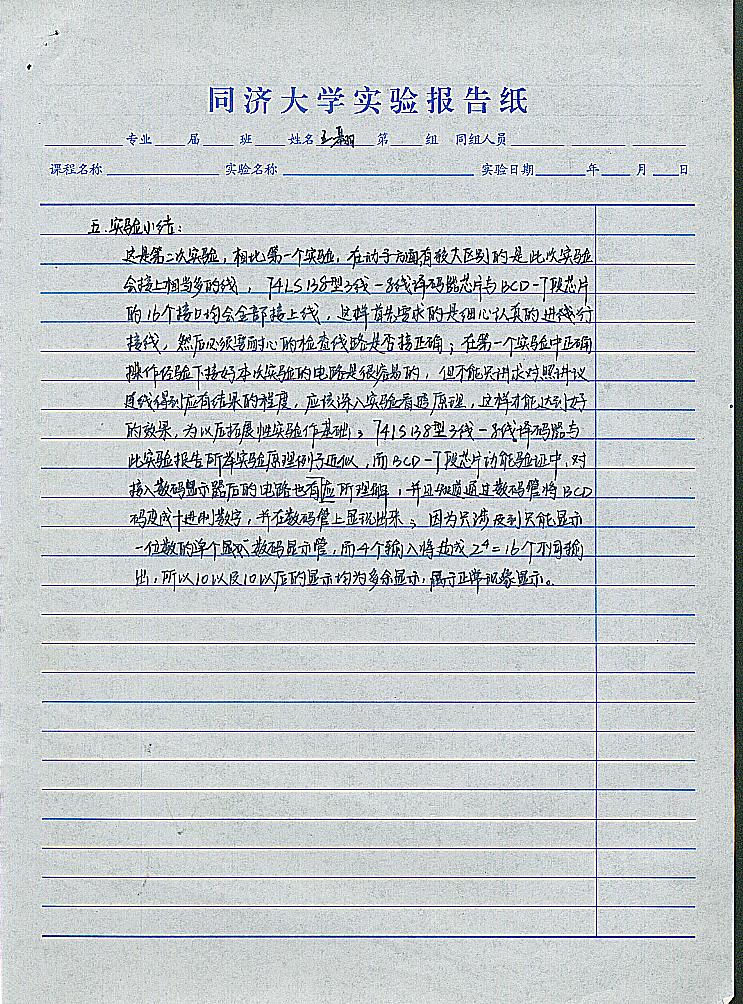 同济大学实验报告纸
专业 届 班 姓名 王 第 组 同组人员
课程名称 实验名称 实验日期 年 月 日
五.实验小结:
这是第二次实验,相比第一个实验,在动手方面有较大区别的是此次实验
会接上相当多的线,74LS138型3线-8线译码器芯片与BCD-7段芯片
的16个接口均会全部接上线,这样首先要求的是细心认真的进线行
接线,然后必须要耐心的检查线路是否接正确;在第一个实验中正确
操作经验下接好本次实验的电路是很容易的,但不能只讲求对照讲议
连线得到应有结果的程度,应该深入实验看透原理,这样才能达到好
的效果,为以后拓展性实验作基础;74LS138型3线-8线译码器与
此实验报告所举实验原理例子近似,而BCD-7段芯片功能验证中,对
接入数码显示器后的电路也有应所理解,并且知道通过数码管将BCD
码变成十进制数字,并在数码管上显现出来;因为只涉及到只能显示
一位数的单个显示数码显示管,而4个输入将构成2⁴=16个不同输
出,所以10以及10以后的显示均为多余显示,属于正常现象显示。